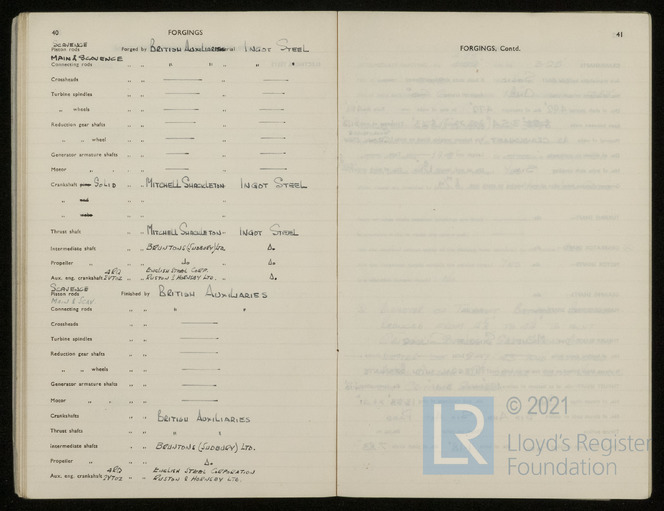 40
FORGINGS
SCAVENGE
Piston rods Forged by BRITISH AUXILIARIES Material INGOT STEEL
MAIN & SCAVENGE
Connecting rods " " " " " " "
Crossheads " " "
Turbine spindles " " "
" wheels " " "
Reduction gear shafts " " "
" " wheel " " "
Generator armature shafts " " "
Motor " " " " "
Crankshaft SOLID " " MITCHELL SHACKLETON INGOT STEEL
" " " "
" " " "
Thrust shaft " " MITCHELL SHACKLETON " INGOT STEEL
Intermediate shaft " " BRUNTONS (SUDBURY) LTD. Do.
Propeller " " " Do Do.
4RQ ENGLISH STEEL CORP.
Aux. eng. crankshafts 2VTOZ " " RUSTON & HORNSBY LTD. " Do.
SCAVENGE
Piston rods Finished by BRITISH AUXILIARIES
MAIN & SCAV.
Connecting rods " " " "
Crossheads " "
Turbine spindles " "
Reduction gear shafts " "
" " wheels " "
Generator armature shafts " "
Motor " " " "
Crankshafts " " BRITISH AUXILIARIES
Thrust shafts " " " "
Intermediate shafts " " BRUNTONS (SUDBURY) LTD.
Propeller " " " Do.
4RQ ENGLISH STEEL CORPORATION
Aux. eng. crankshafts 2VTOZ " " RUSTON & HORNSBY LTD.
41
FORGINGS, Contd.
LR
© 2021
Lloyd's Register
Foundation